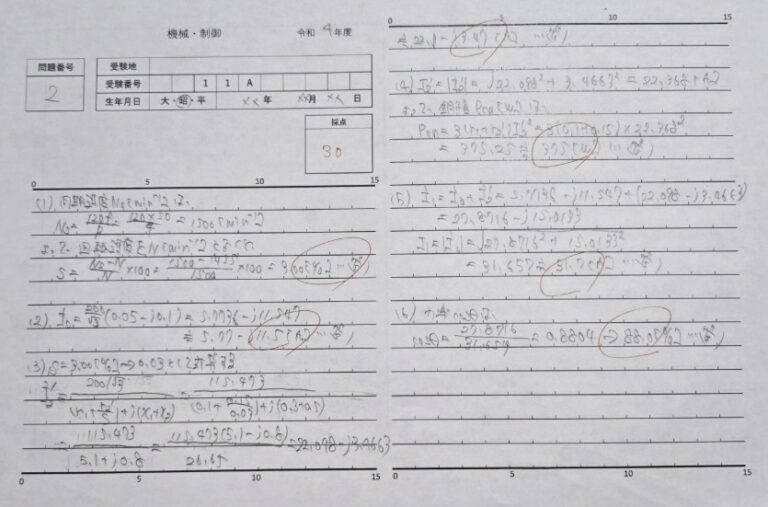 機械・制御 令和 4 年度
問題番号
2
受験地
受験番号 1 1 A
生年月日 大・昭・平 ×× 年 ×× 月 ×× 日
採点
30
0 5 10 15
(1) 同期速度 Ns[min^-1]は、
Ns = 120f/P = 120×50/4 = 1500[min^-1]
よって、回転速度をN[min^-1]とおくと、
S = Ns-N/N ×100 = 1500-1455/1500 ×100 = 3.00[%] …(答)
(2) İ₀ = 200/√3 (0.05-j0.1) = 5.7736-j11.547
≒ 5.77-j11.5[A] …(答)
(3) S=3.00[%]→0.03として計算する
200/√3 115.473
(r₁+r₂'/s)+j(x₁+x₂) (0.1+0.15/0.03)+j(0.3+0.5)
= 115.473/5.1+j0.8 = 115.473(5.1-j0.8)/26.65 = 22.098-j3.4663
0 5 10 15
0 5 10 15
≒ 22.1-j3.47[A] …(答)
(4) I₂' = |İ₂'| = √22.098²+3.4663² = 22.368[A]
よって、銅損 Pcn[W]は、
Pcn = 3(r₁+r₂')I₂'² = 3(0.1+0.15)×22.368²
= 375.25 ≒ 375[W] …(答)
(5) İ₁ = İ₀+İ₂' = 5.7736-j11.547+(22.098-j3.4663)
= 27.8716-j15.0133
I₁ = |İ₁| = √27.8716²+15.0133²
= 31.657 ≒ 31.7[A] …(答)
(6) 力率cosθは、
cosθ = 27.8716/31.657 = 0.8804 → 88.0[%] …(答)
0 5 10 15